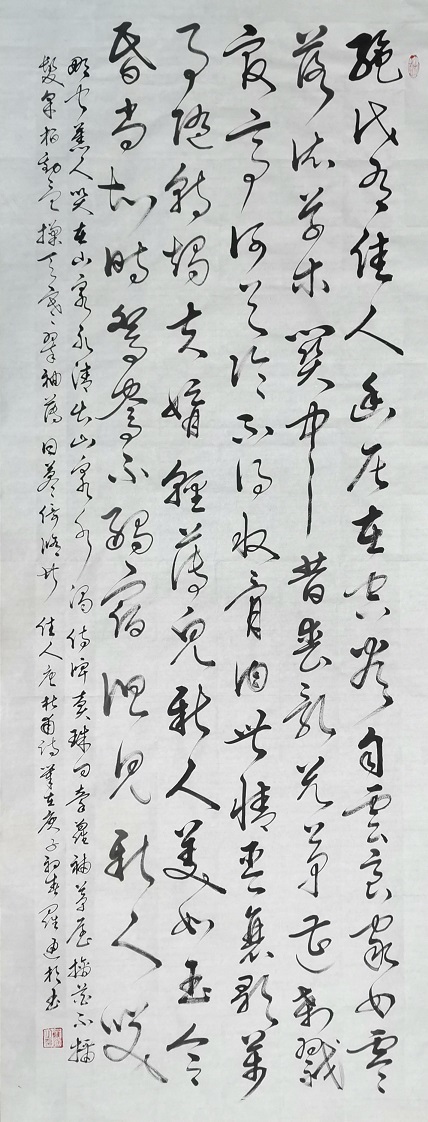 絕代有佳人幽居在空谷自雲良家女零
落依草木關中昔喪亂兄弟遭殺戮
官高何足論不得收骨肉世情惡衰歇萬
事隨轉燭夫婿輕薄兒新人美如玉合
昏尚知時鴛鴦不獨宿但見新人笑
那聞舊人哭在山泉水清出山泉水濁侍婢賣珠回牽蘿補茅屋摘花不插
髮采柏動盈掬天寒翠袖薄日暮倚修竹 佳人唐杜甫詩歲在庚子初春羅書